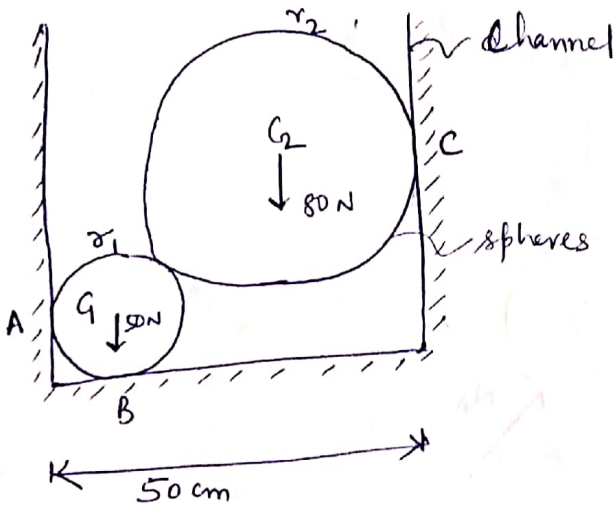 r₂
Channel
C₂
80 N
C
spheres
r₁
C₁
50N
A
B
50 cm